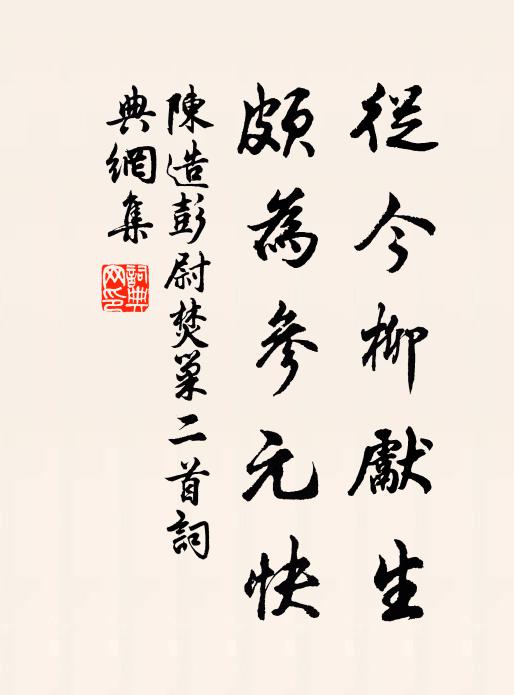 從今柳獻生
頗為參元快
陳造彭尉焚巢二首詞
典網集
詞典網印